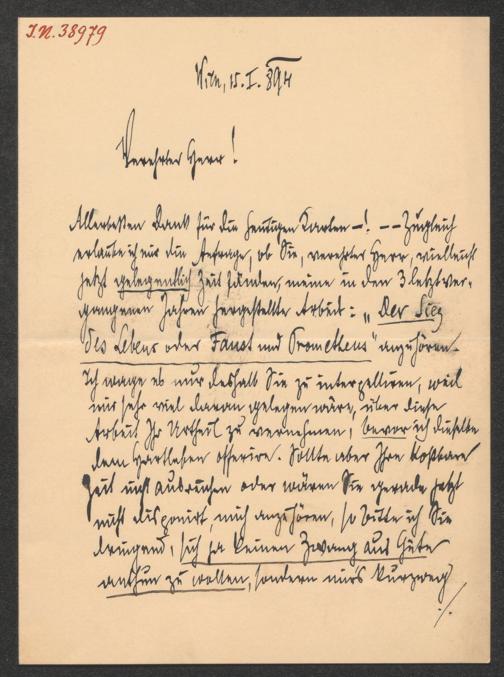 I.N. 38979
Wien, 15. I. 894
Verehrter Herr!
Allerbesten Dank für die heutigen Karten –! –– Zugleich
erlaube ich mir die Anfrage, ob Sie, verehrter Herr, vielleicht
jetzt gelegentlich Zeit fänden, meine in den 3 letztver-
gangenen Jahren hergestellte Arbeit: „Der Sieg
des Lebens oder Faust und Prometheus" anzuhören.
Ich wage es nur deshalb Sie zu interpelliren, weil
mir sehr viel daran gelegen wäre, über diese
Arbeit Ihr Urtheil zu vernehmen, bevor ich dieselbe
dem Hartleben offerire. Sollte aber Ihre kostbare
Zeit nicht ausreichen oder wären Sie gerade jetzt
nicht disponirt mich anzuhören, so bitte ich Sie
dringend, sich ja keinen Zwang aus Güte
anthun zu wollen, sondern mir's kurzweg
./.